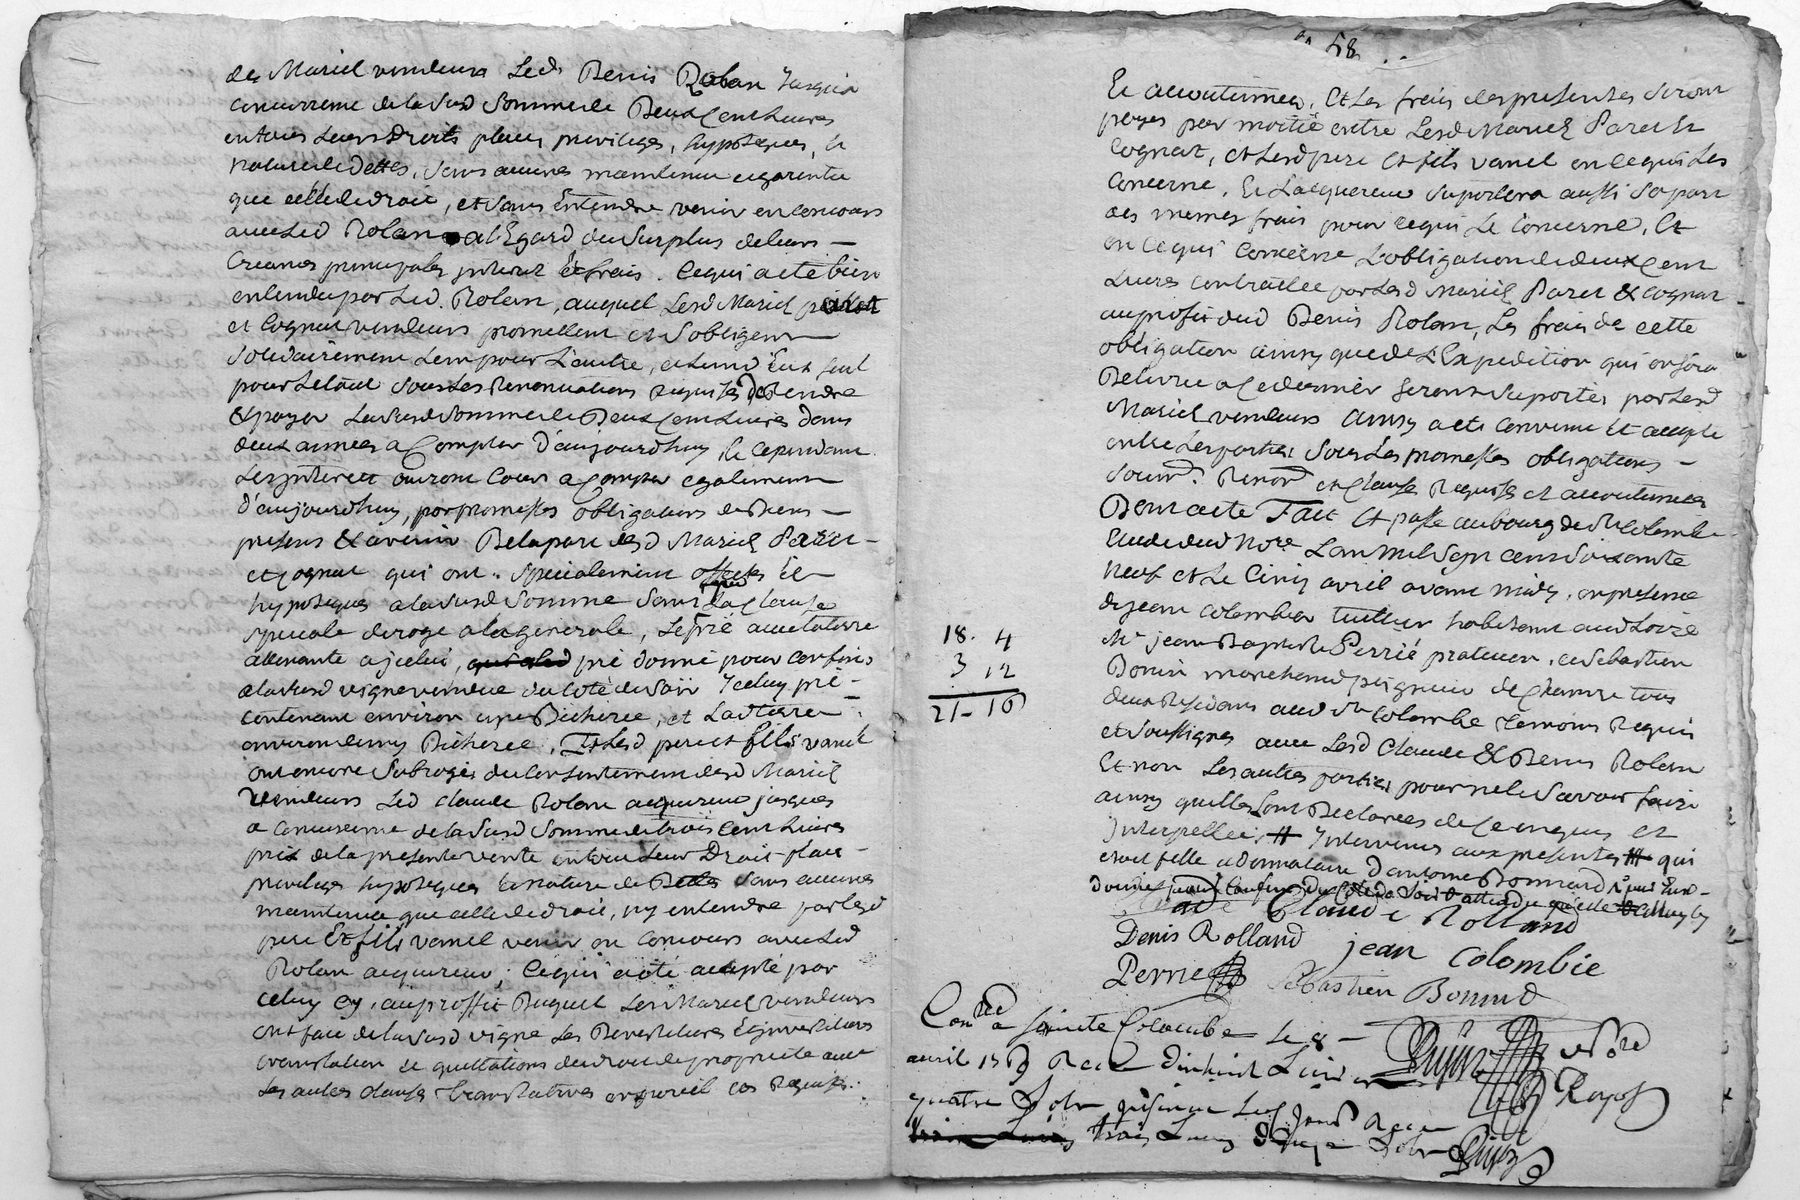 des Mariel vendeurs Led. Denis Rolan Jusqu'a
concurrence de la susd somme de Deux Cent Livres
en tous Leurs Droits places, privileges, hypoteques, Et
nature de Dettes, sans aucunes maintenue e garentie
que celle de droit, et sans Entendre venir en concours
avec Led Rolan a l'Egard du surplus de leurs
Creances principales interest & frais. Ce qui a eté bien
entendu par Led. Rolan, auquel Lesd Mariel
et Cognat vendeurs promettent et s'obligent
Solidairement L'un pour L'autre, et L'un d'Eux seul
pour Le tout sous Les Renonciations requises De Rendre
& payer La susd Somme de Deux Cent Livres dans
deux années a Compter D'aujourdhuy, et cependant
Les interest auront Cours a Compter egalement
D'aujourdhuy, par promesses obligations de Biens
presens & avenir De la part desd Mariel Paret
et Cognat qui ont specialement affectés Et
hypoteques a la susd somme sans que La Clause
speciale deroge a la generale, Le pré avec la terre
attenante a jcelui, pré donné pour confins
a la susd vigne vendue du coté de soir Jceluy pré
contenant environ une Bicherée, et Lad terre
environ demy Bicherée. Et Lesd pere et fils vanel
ont encore Subrogés du Consentement desd Mariel
vendeurs Led Claude Rolan acquereur jusques
a concurrence de la susd Somme de trois Cent Livres
prix de la presente vente en tous Leur Droit place
privileges hypoteques Et nature de Dettes sans aucunes
maintenue que celle de droit, ny entendre par Lesd
pere Et fils vanel venir en concours avec Led
Rolan acquereur; Ce qui a eté accepté par
celuy cy, au proffit Duquel Lesd Mariel vendeurs
ont fait de la susd vigne Les Devestitures Et investitures
translation et quittations du droit de propriete avec
Les autres clauses translatives en pareil cas Requises.
58
Et accoutumées. Et Les frais des presentes seront
payes par moitié entre Lesd Mariel Paret Et
Cognat, et Lesd pere et fils vanel en ce qui Les
Concerne. Et L'acquereur suportera aussi sa part
des memes frais pour ce qui Le Concerne. Et
en ce qui Concerne L'obligation de deux Cent
Livres contractée par Lesd Mariel Paret & Cognat
au profit dud Denis Rolan, Les frais de cette
obligation ainsy que de L'Expedition qui en sera
Delivrée a ce dernier seront suportés par Lesd
Mariel vendeurs ainsy a eté convenu Et accepté
entre Les parties sous Les promesses obligations
soumᵒⁿ. Renonᵒⁿ et Clauses Requises et accoutumées
Dont acte Fait Et passé au bourg de Ste Colombe
Etude dud Nore. L'an mil sept cent soixante
neuf et Le Cinq avril avant midy, en presence
de jean Colombier tuillier habitant aud Loire
Mr jean Baptiste Perrié praticien, et Sebastien
Bonin marchand peigneur de Chanvre tous
deux Residans aud Ste Colombe temoins Requis
et soussignes avec Lesd Claude & Denis Rolan
Et non Les autres parties pour ne le savoir faire
ainsy quelles l'ont Declarées de ce enquis et
Interpellées, # Intervenus aux presentes # qui
Claude Rolland
Denis Rolland jean Colombie
Perrie Sebastien Bonind
18. 4
3 12
21 - 16
Conlé a Sainte Colombe Le 8
avril 1769 Recu Dixhuit Livres
quatre sols
trois Livres Douze sols